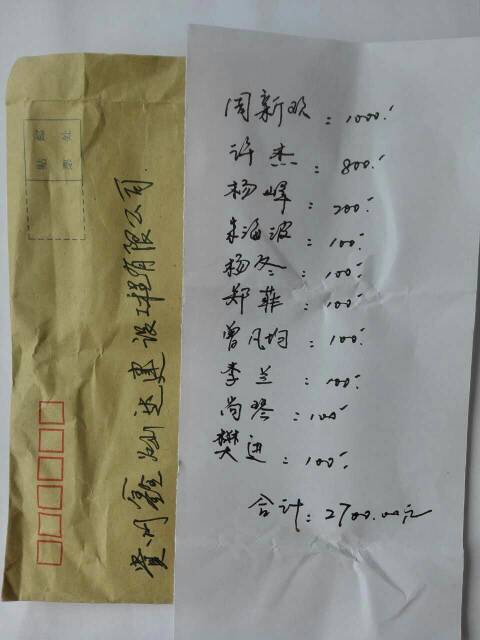 贴票处
贵州鑫灿达建设工程有限公司
周新欢：1000.-
许杰：800.-
杨峰：200.-
朱海波：100.-
杨冬：100.-
郑菲：100.-
曾凡均：100.-
李兰：100.-
尚琴：100.-
樊进：100.-
合计：2700.00元